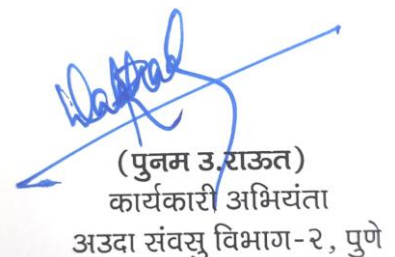 (पुनम उ.राऊत)
कार्यकारी अभियंता
अउदा संवसु विभाग-२, पुणे